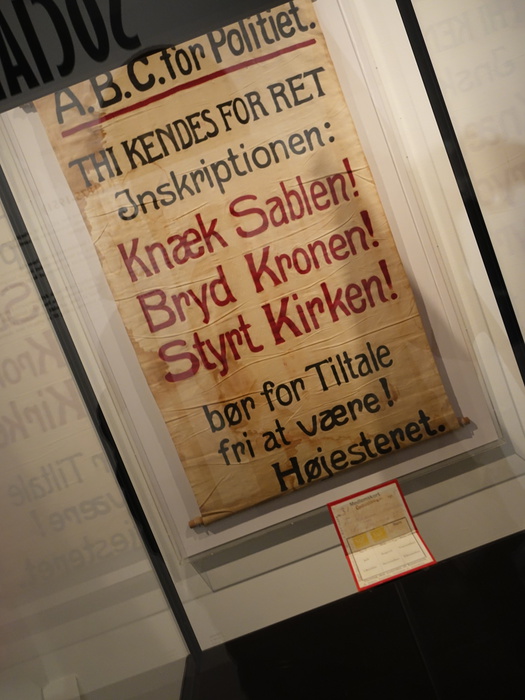 A.B.C. for Politiet.
THI KENDES FOR RET
Jnskriptionen:
Knæk Sablen!
Bryd Kronen!
Styrt Kirken!
bør for Tiltale
fri at være!
Høiesteret.